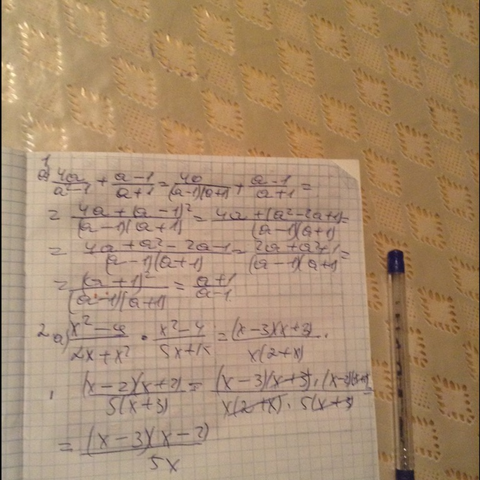 1
а) 4a/(a²-1) + (a-1)/(a+1) = 4a/((a-1)(a+1)) + (a-1)/(a+1) =
= (4a+(a-1)²)/((a-1)(a+1)) = (4a+(a²-2a+1)/((a-1)(a+1)
= (4a+a²-2a-1)/((a-1)(a+1)) = (2a+a²+1)/((a-1)(a+1)) =
= (a+1)²/((a-1)(a+1)) = (a+1)/(a-1)
2 а) /(2x+x²) · (x²-4)/ = (x-3)(x+3)/(x(2+x)) ·
· (x-2)(x+2)/(5(x+3)) = (x-3)(x+3)·/(x(2+x)·5(x+3)) =
= (x-3)(x-2)/(5x)